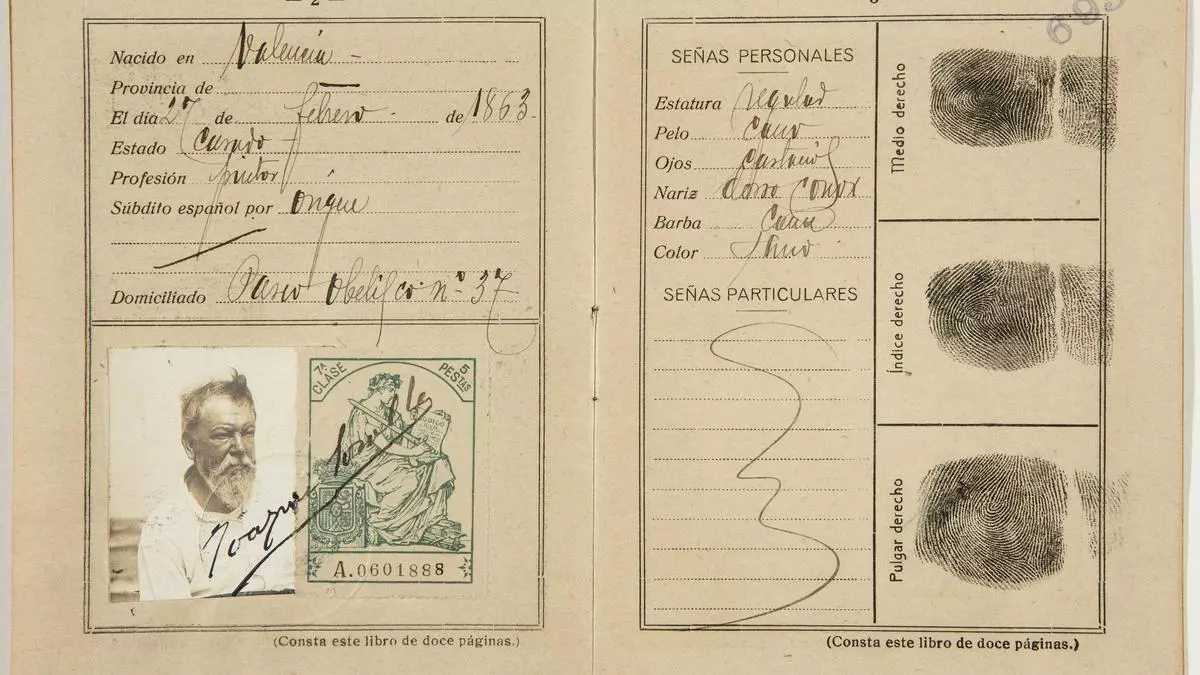 — 2 —
Nacido en Valencia —
Provincia de —
El día 27 de febrero de 1863.
Estado Casado
Profesión pintor
Súbdito español por origen
Domiciliado Paseo Obelisco nº 37
7ª CLASE
5 PESTAS
CODIGO
Joaquin Sorolla
A.0601888
(Consta este libro de doce páginas.)
695
SEÑAS PERSONALES
Estatura regular
Pelo cano
Ojos castaños
Nariz dorso convex
Barba cana
Color sano
SEÑAS PARTICULARES
Medio derecho
Indice derecho
Pulgar derecho
(Consta este libro de doce páginas.)